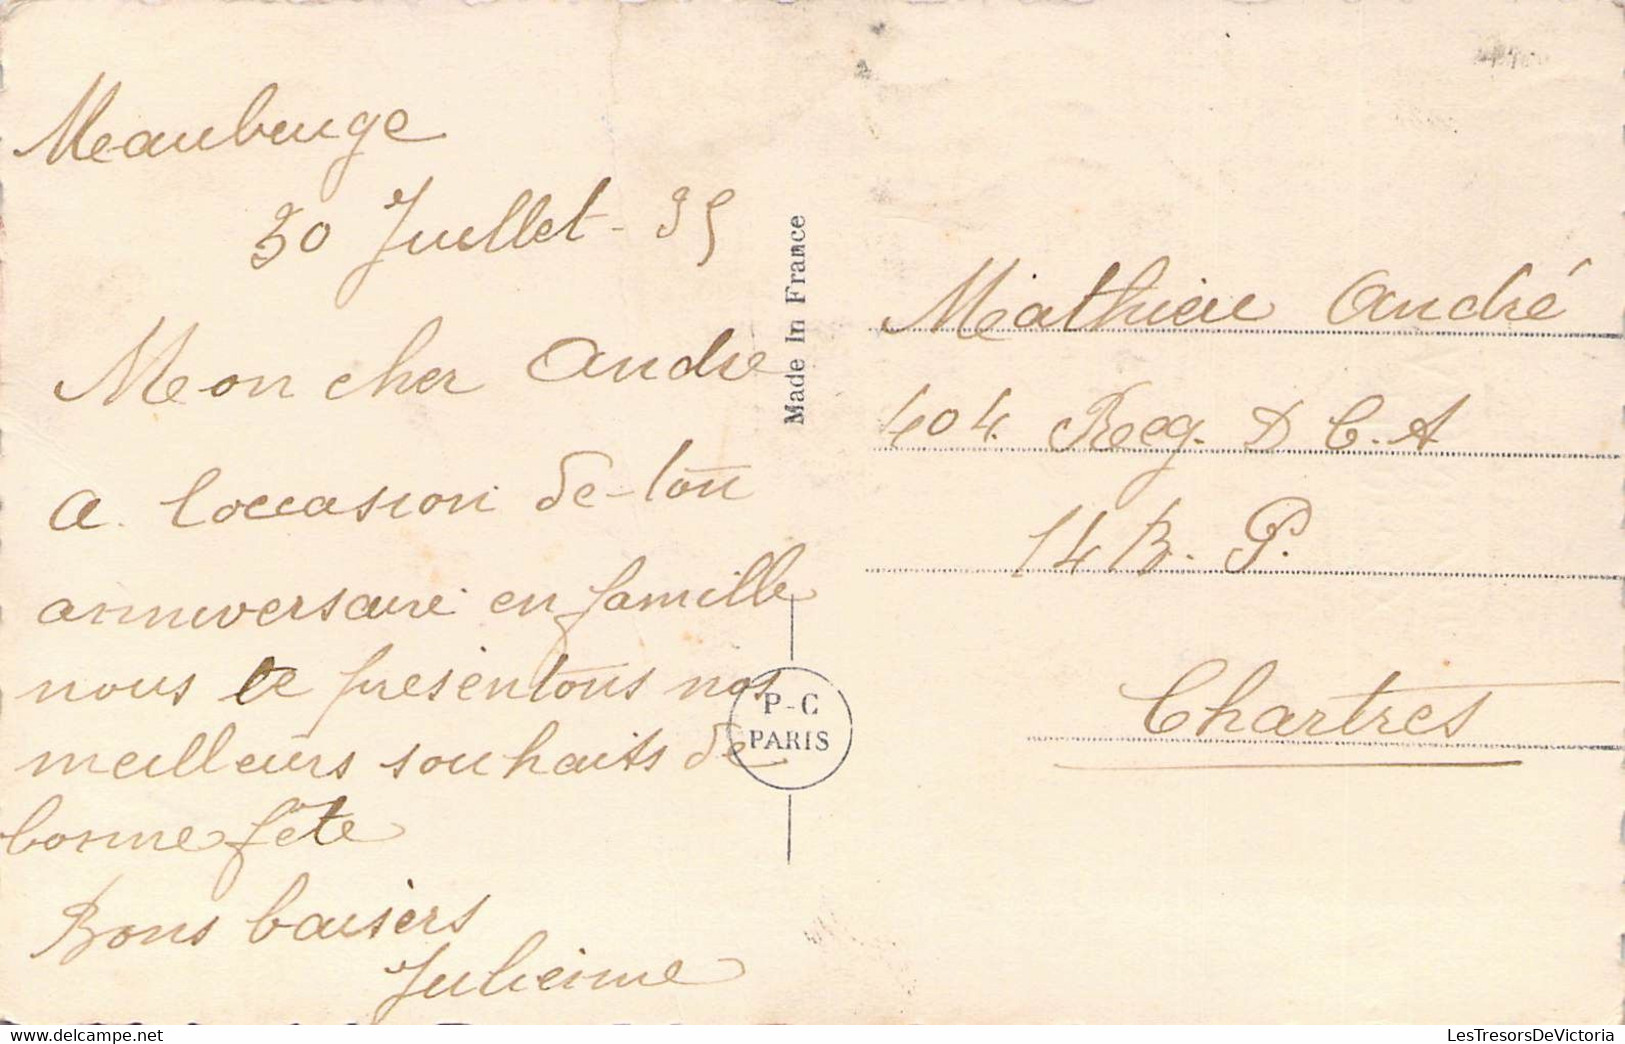 Meaubeuge
30 Juillet - 35
Mon cher André
a. l'occasion de ton
anniversaire en famille
nous te présentons nos
meilleurs souhaits de
bonne fête
Bons baisers
Julienne
Made In France
P-C
PARIS
Mathieu André
404. Reg. D C. A
14 B. P.
Chartres
www.delcampe.net
LesTresorsDeVictoria